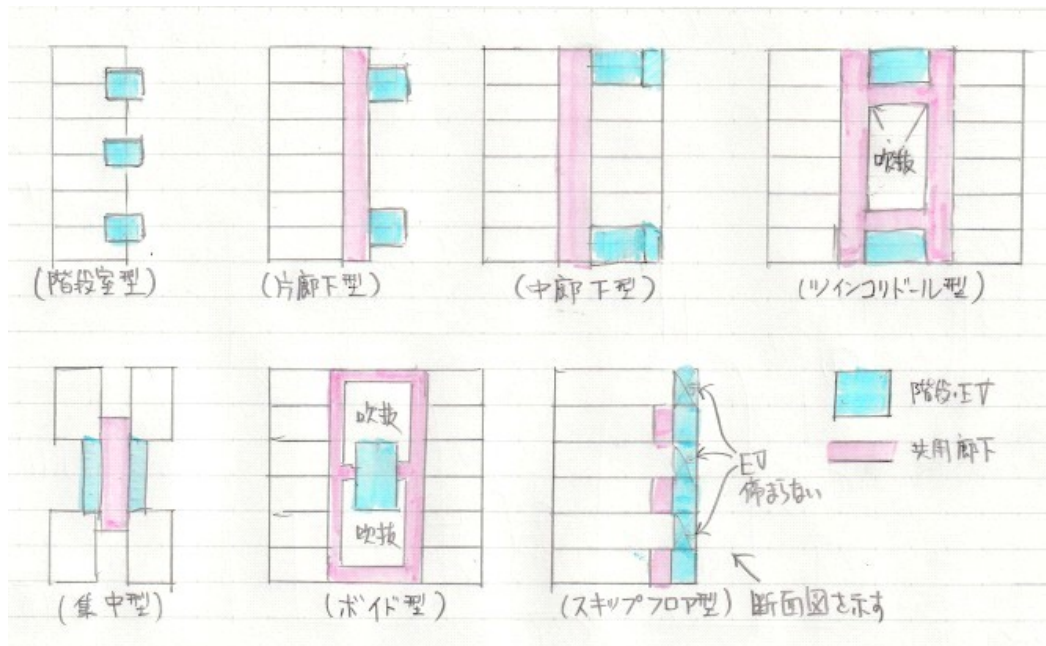 吹抜
(階段室型)
(片廊下型)
(中廊下型)
(ツインコリドール型)
吹抜
吹抜
階段・EV
共用廊下
EV
停まらない
(集中型)
(ボイド型)
(スキップフロア型) 断面図を示す